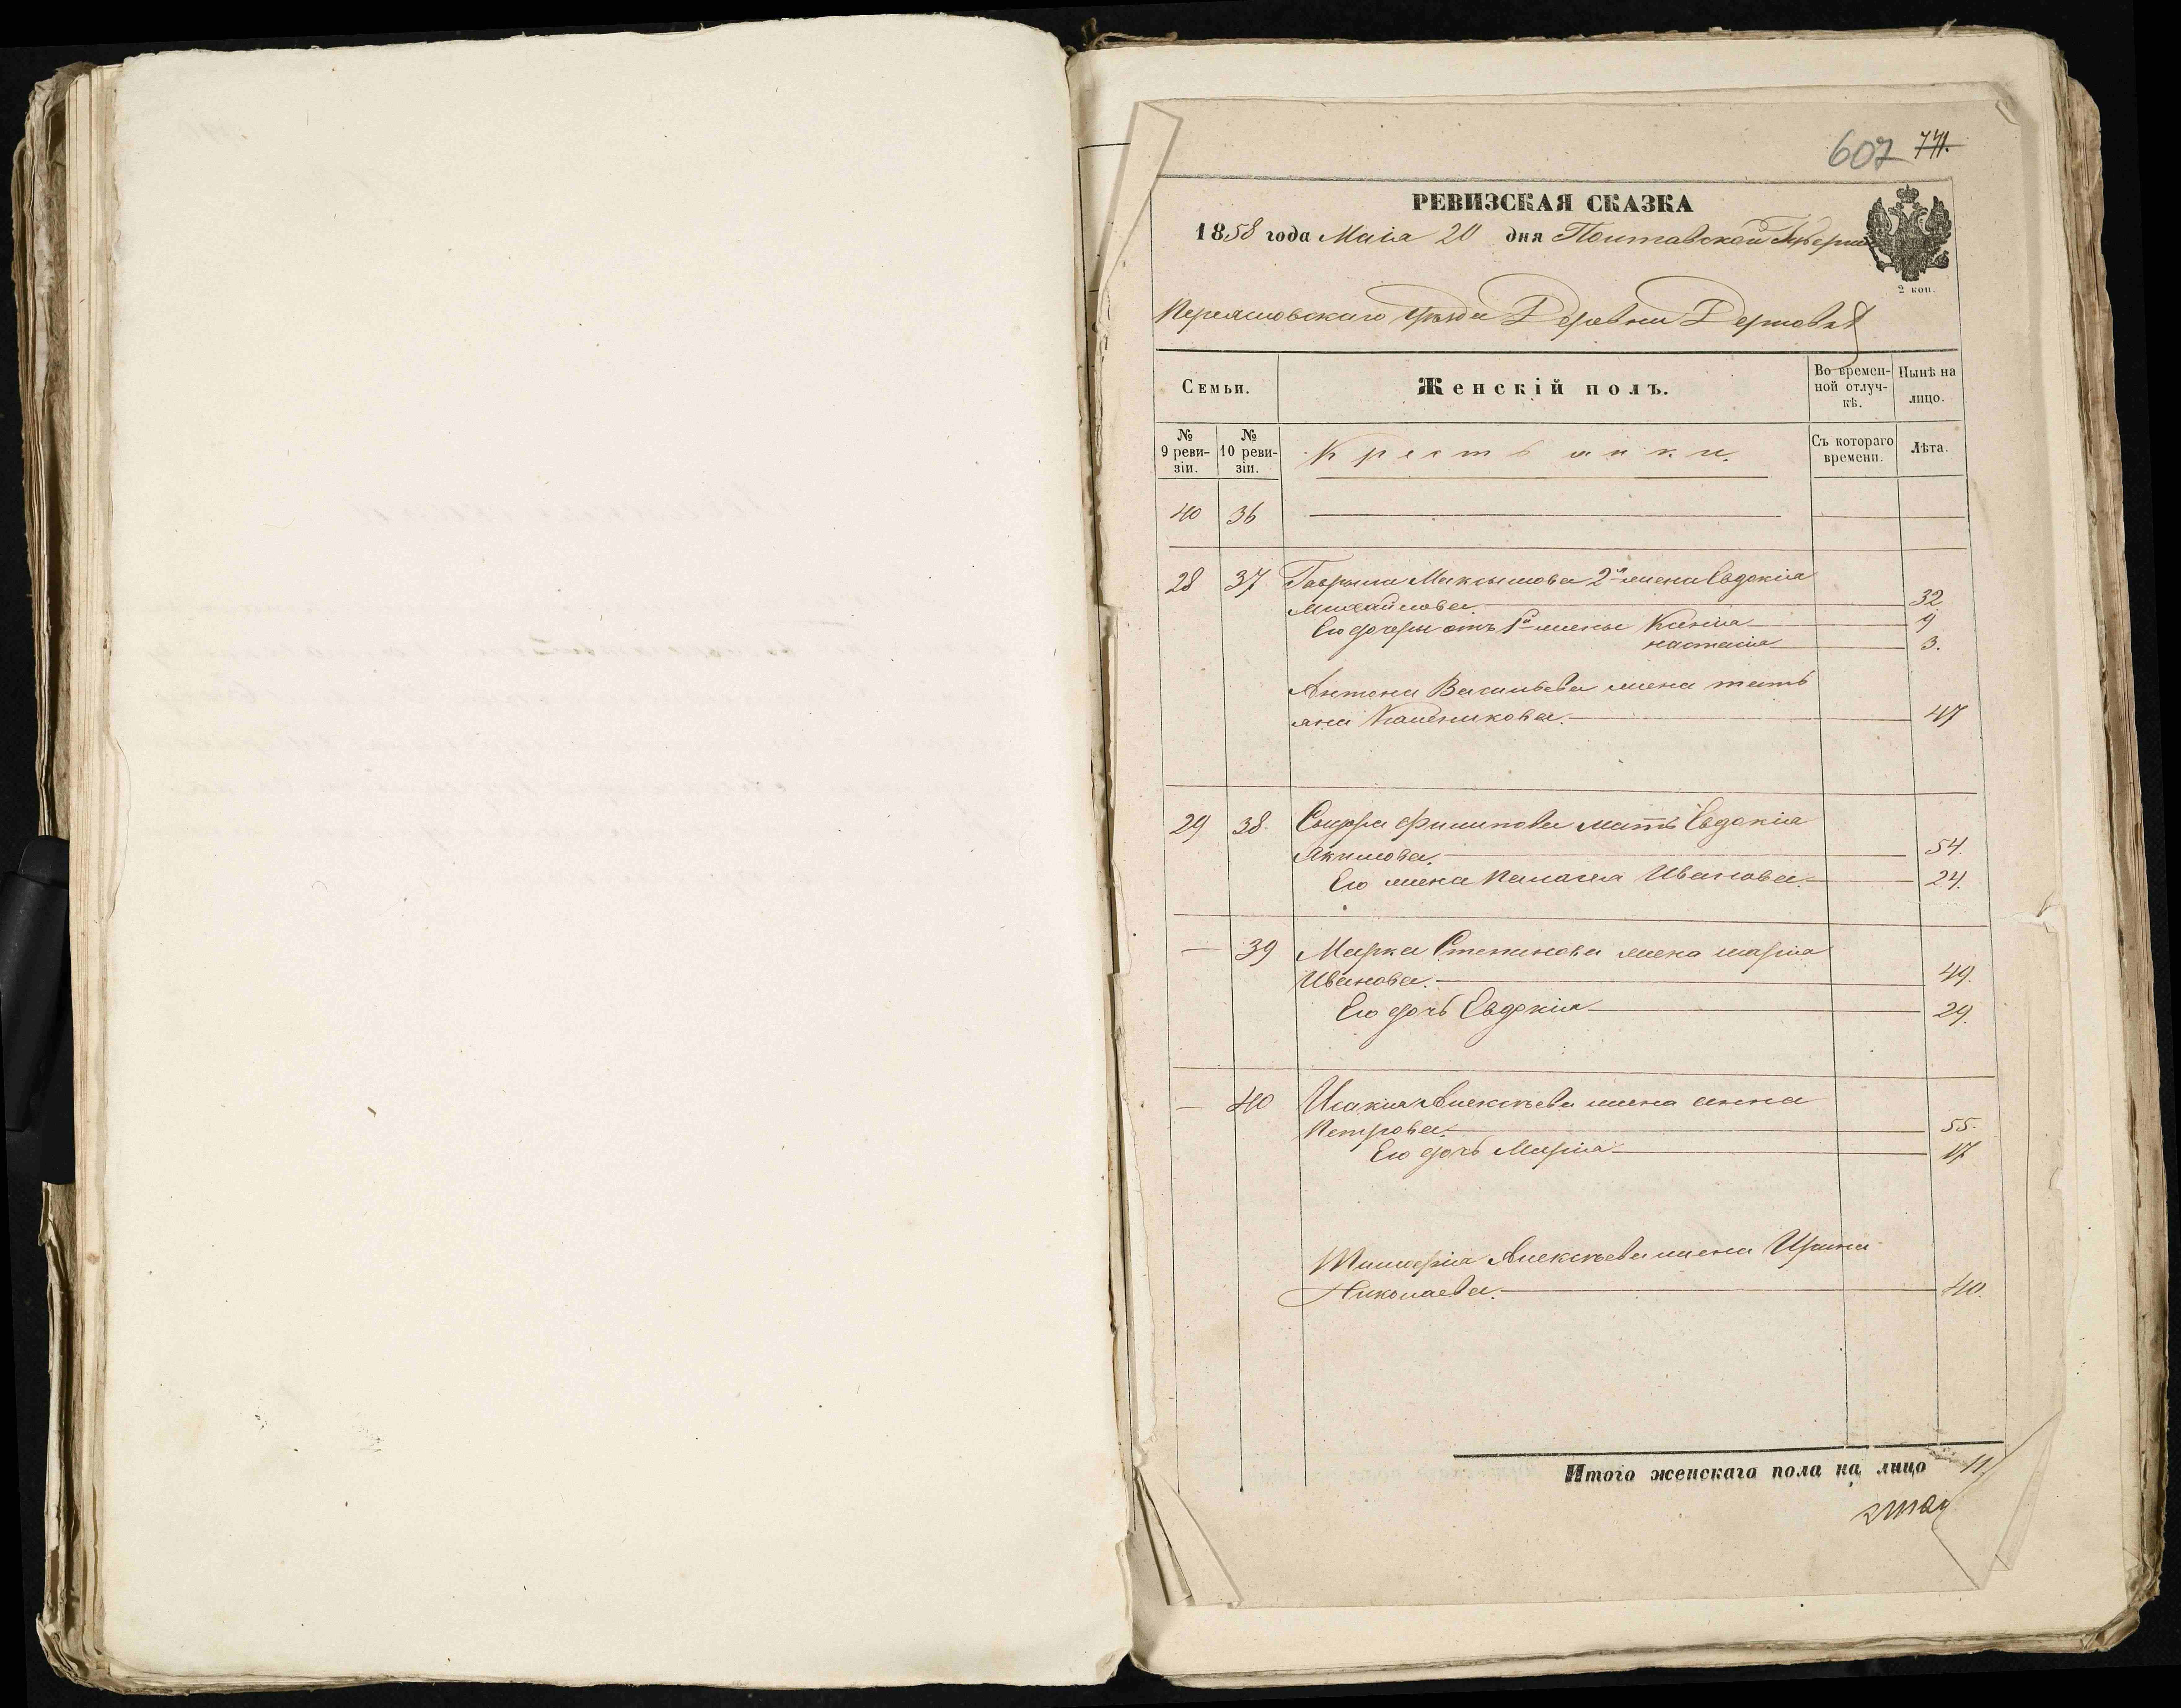 607 771.
РЕВИЗСКАЯ СКАЗКА
1858 года Маія 20 дня Полтавской Губерніи
2 коп.
Переяславскаго Уѣзда Деревни
Семьи. Женскій полъ. Во времен- Нынѣ на
ной отлуч- лицо.
кѣ.
№ № Крестьянки. Съ котораго Лѣта.
9 реви- 10 реви- времени.
зіи. зіи.
40 36
28 37 Гаврила Максимова 2я жена Евдокія
Михайлова. 32
Его дочери отъ 1й жены Ксенія 9
настасія 3.
Антона Васильева жена тать
яна 47
29 38. Сидора Филипова мать Евдокія
Якимова. 54.
Его жена Паласея Иванова. 24.
— 39 Марка Степанова жена марія
Иванова. 49.
Его дочь Евдокія 29.
— 40 Исакія Алексѣева жена анна
Петрова. 55.
Его дочь Марія 17
Тимофія Алексѣева жена Ирина
Николаева. 40.
Итого женскаго пола на лицо 11.